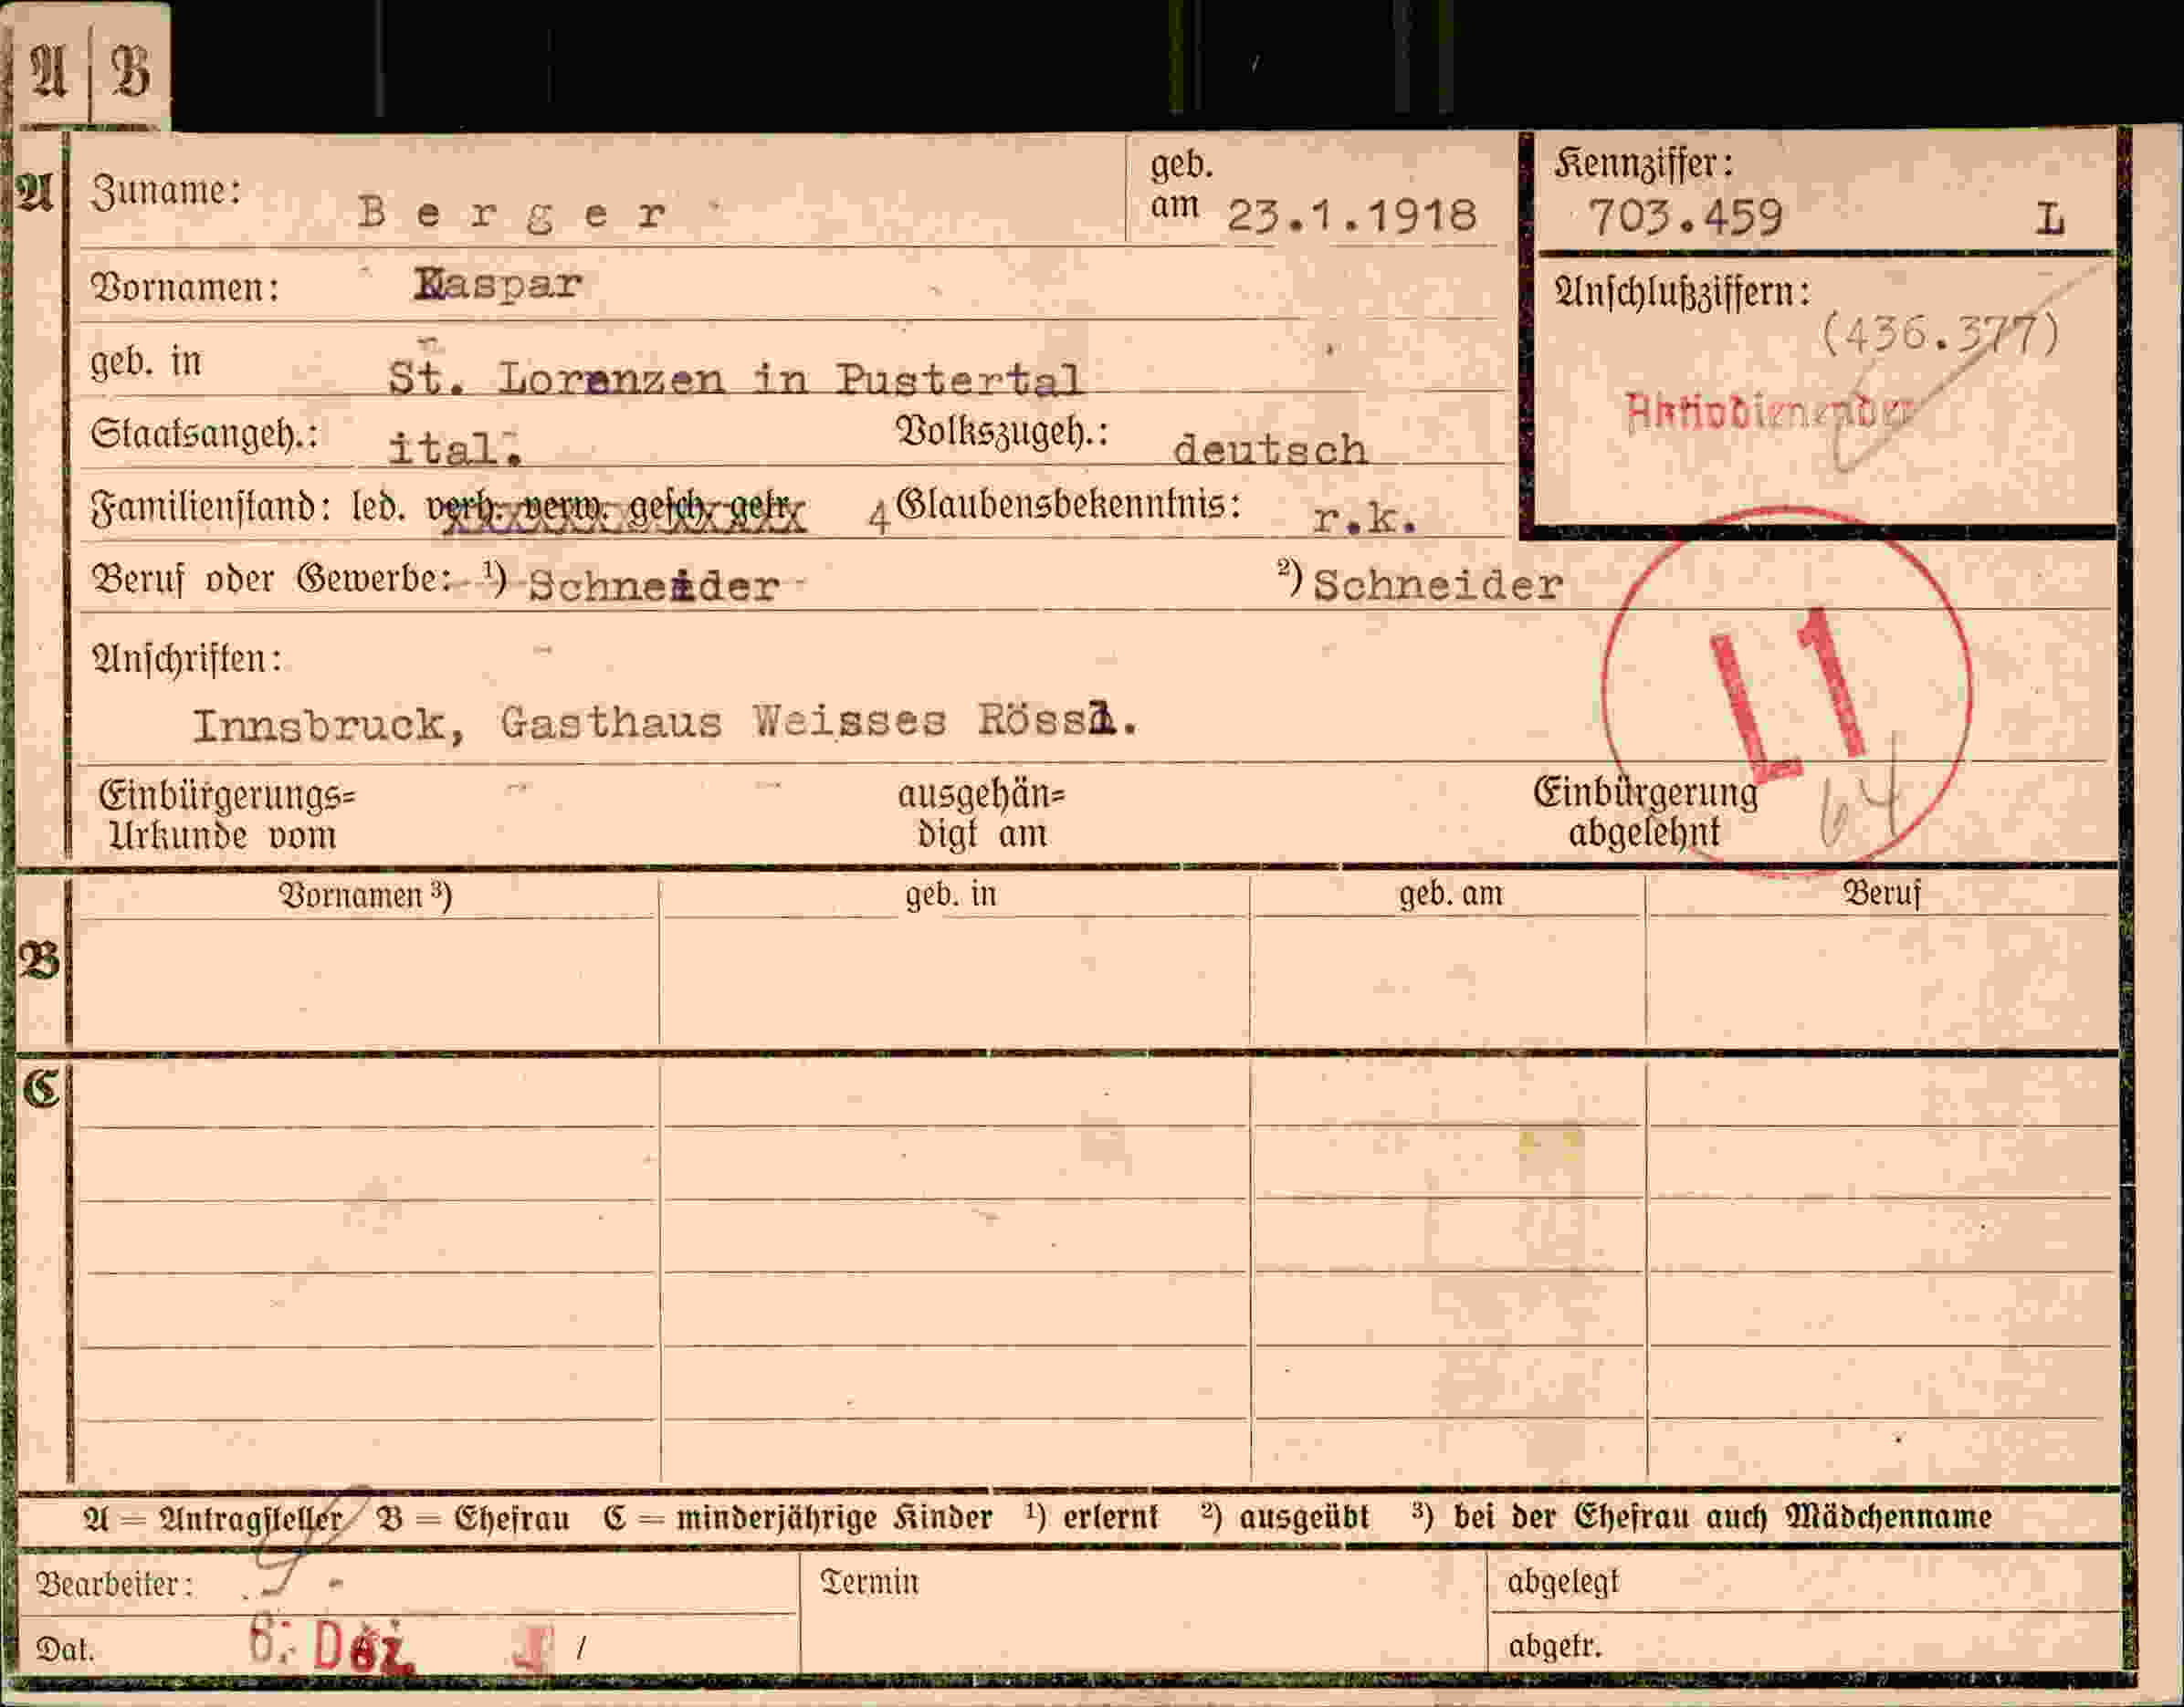 A B
A Zuname: Berger geb. am 23.1.1918 Kennziffer: 703.459 L
Vornamen: Kaspar Anschlußziffern: (436.377)
geb. in St. Lorenzen in Pustertal
Staatsangeh.: ital. Volkszugeh.: deutsch
Familienstand: led. verh. verw. gesch. getr. 4 Glaubensbekenntnis: r.k.
Beruf oder Gewerbe: ¹) Schneider ²) Schneider
Anschriften: L1
Innsbruck, Gasthaus Weisses Rössl.
Einbürgerungs= ausgehän= Einbürgerung 64
Urkunde vom digt am abgelehnt
Vornamen ³) geb. in geb. am Beruf
B
C
A = Antragsteller B = Ehefrau C = minderjährige Kinder ¹) erlernt ²) ausgeübt ³) bei der Ehefrau auch Mädchenname
Bearbeiter: Termin abgelegt
Dat. 6. Dez. / abgetr.